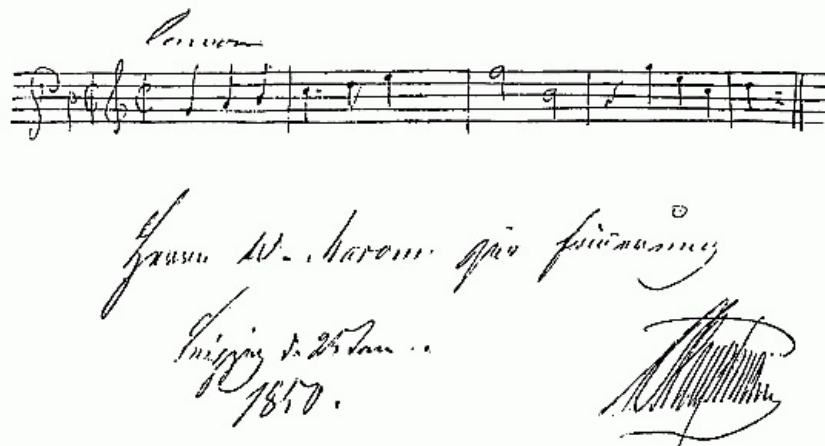 Canon
Herrn W. Mason zur Erinnerung
Leipzig d. 25 Jan
1850.